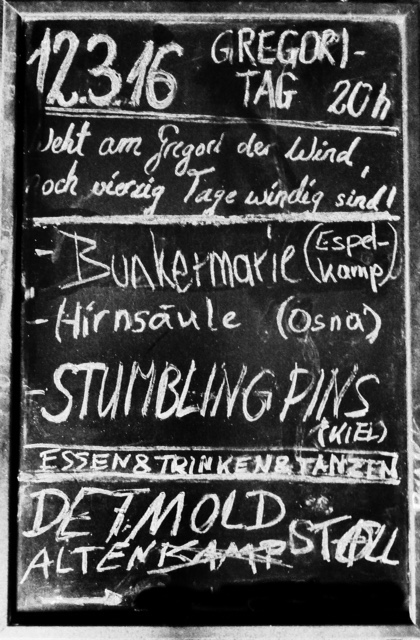 12.3.16
GREGORI-
TAG
20h
Weht am Gregori der Wind,
noch vierzig Tage windig sind!
- Bunkermarie (Espel-
kamp)
- Hirnsäule (Osna)
- STUMBLING PINS
(KIEL)
ESSEN&TRINKEN&TANZEN
DETMOLD
ALTEN